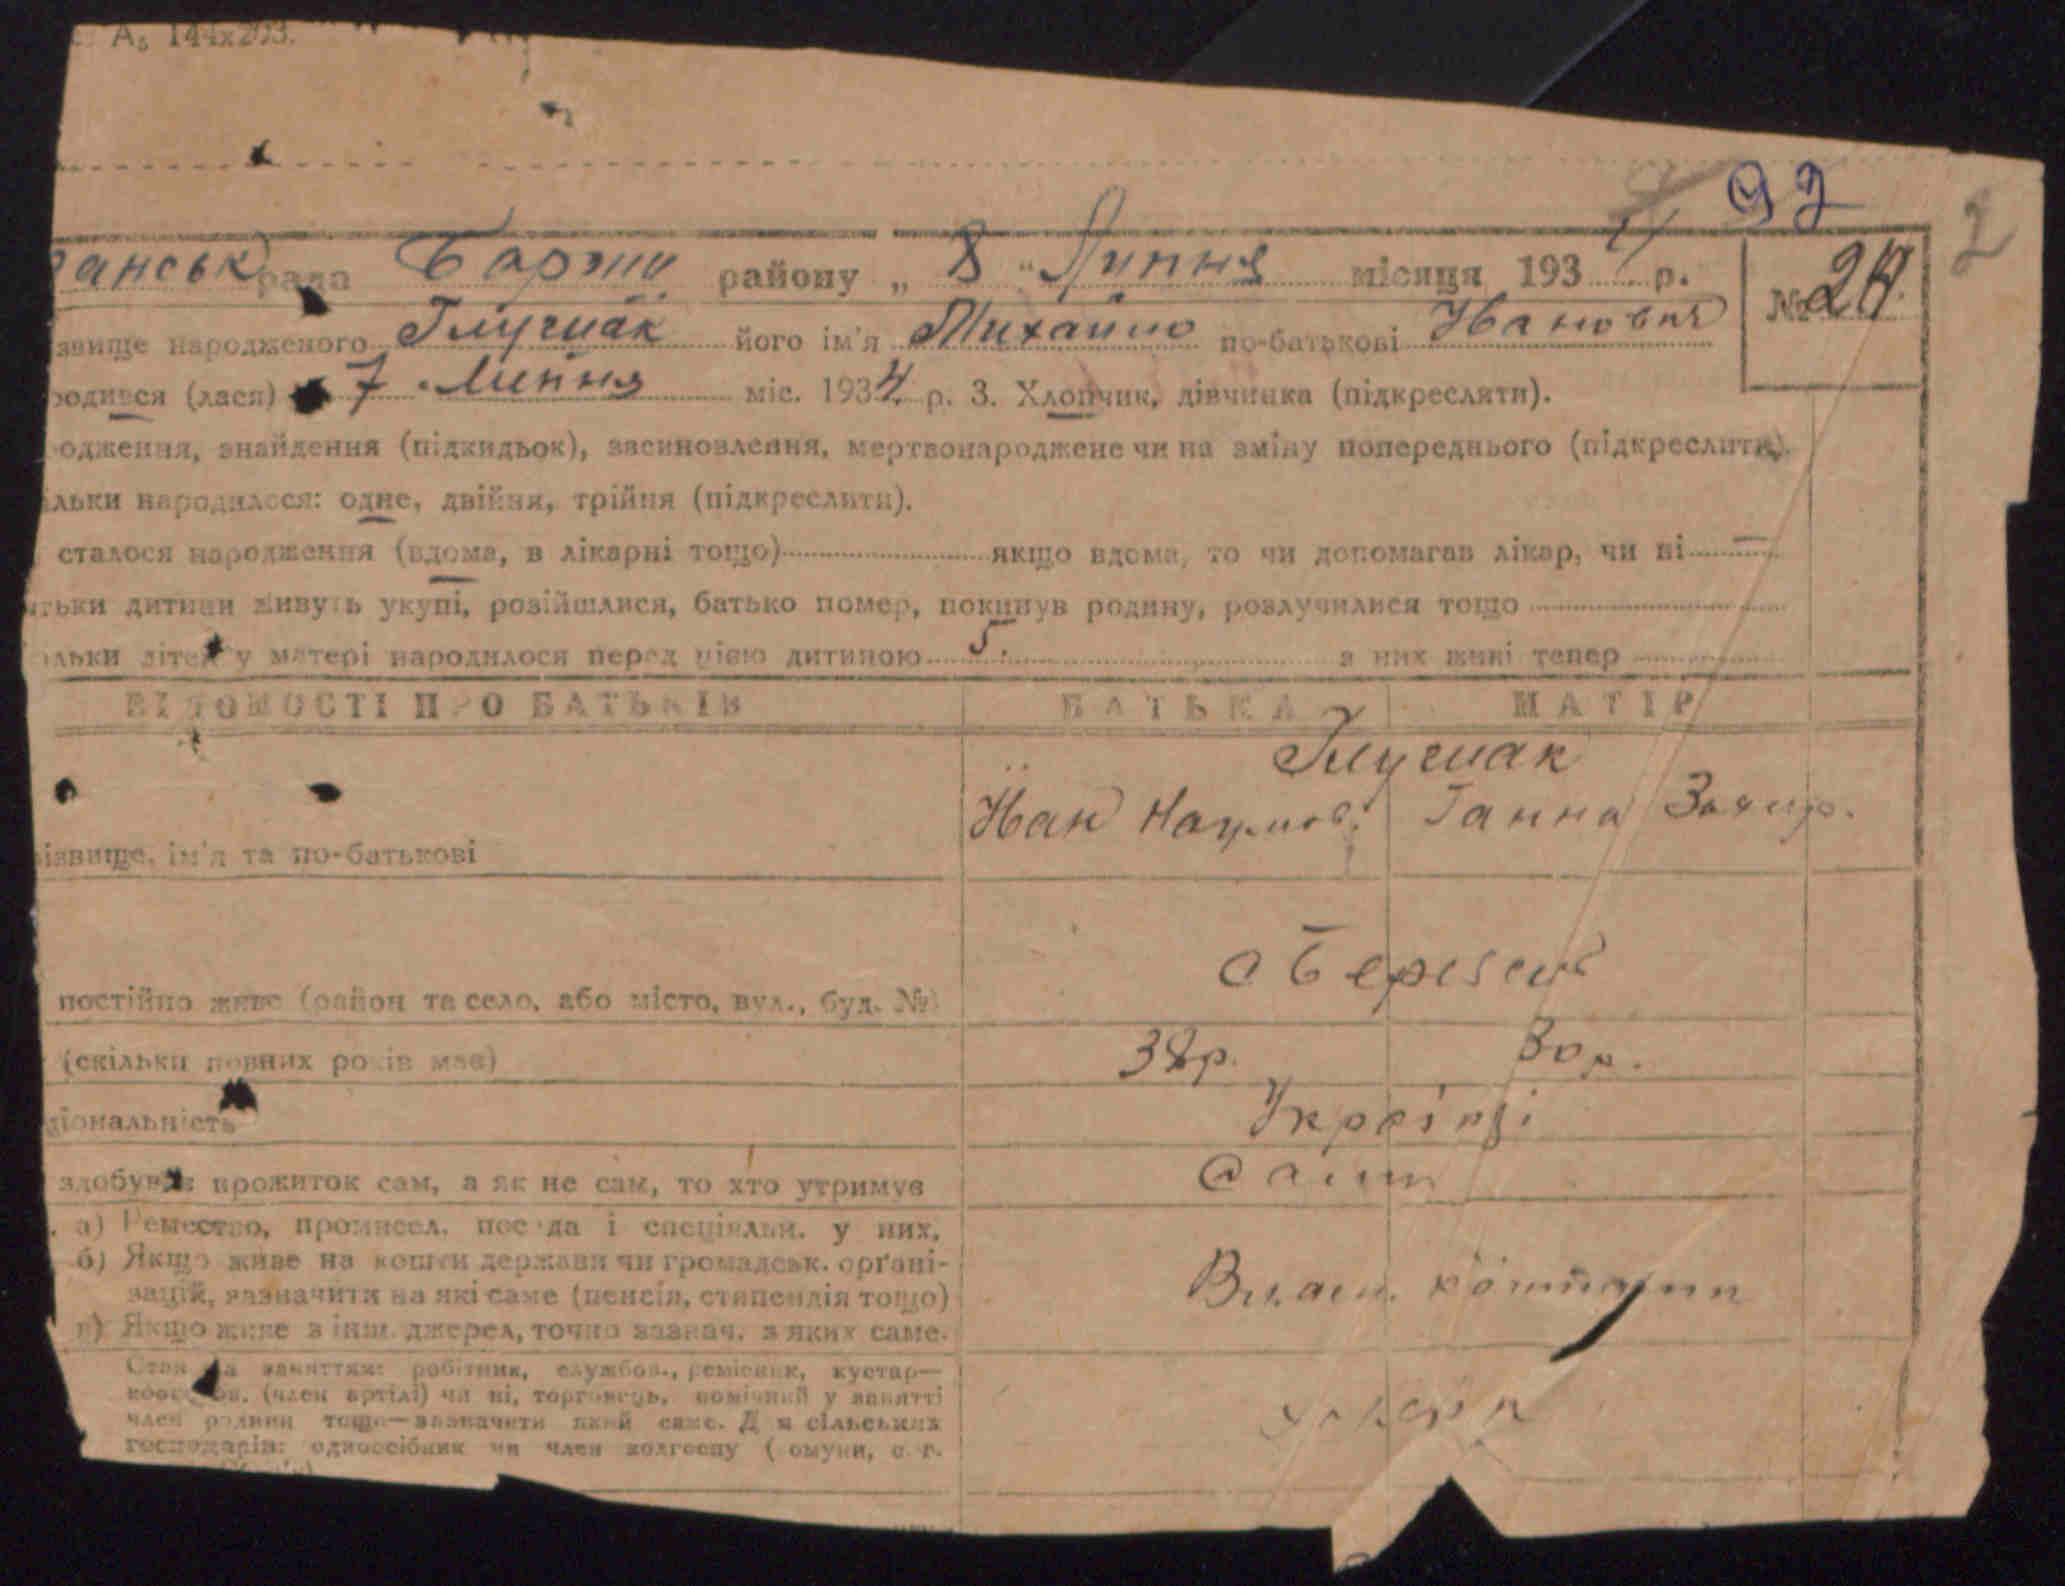 А₅ 144х203.
92
2
анськ рада Баржи району „ 8 " Липня місяця 1934 р.
№ 24
звище народженого Глушак його ім'я Михайло по-батькові Иванович
родився (лася) 7 Липня міс. 1934 р. 3. Хлопчик, дівчинка (підкреслити).
одження, знайдення (підкидьок), засиновлення, мертвонароджене чи на зміну попереднього (підкреслити).
ільки народилося: одне, двійня, трійня (підкреслити).
сталося народження (вдома, в лікарні тощо) якщо вдома, то чи допомагав лікар, чи ні —
атьки дитини живуть укупі, розійшлися, батько помер, покинув родину, розлучилися тощо
ільки дітей у матері народилося перед цією дитиною 5. з них живі тепер
ВІДОМОСТІ ПРО БАТЬКІВ БАТЬКА МАТІР
Глушак
Иван Наумов. Ганна Захар.
різвище, ім'я та по-батькові
постійно живе (район та село, або місто, вул., буд. №)
(скільки повних років має) 38р. 30р.
ціональність Українці
здобуває прожиток сам, а як не сам, то хто утримує Сами
а) Ремество, промисел, посада і спеціяльн. у них,
б) Якщо живе на кошти держави чи громадськ. орґані-
зацій, зазначити на які саме (пенсія, стипендія тощо)
в) Якщо живе з інш. джерел, точно зазнач. з яких саме.
Стан за заняттям: робітник, службов., ремісник, кустар—
(член артілі) чи ні, торговець, помічний у занятті
член родини тощо—зазначити який саме. Для сільських
господарів: одноосібник чи член колгоспу (комуни, с.-г.